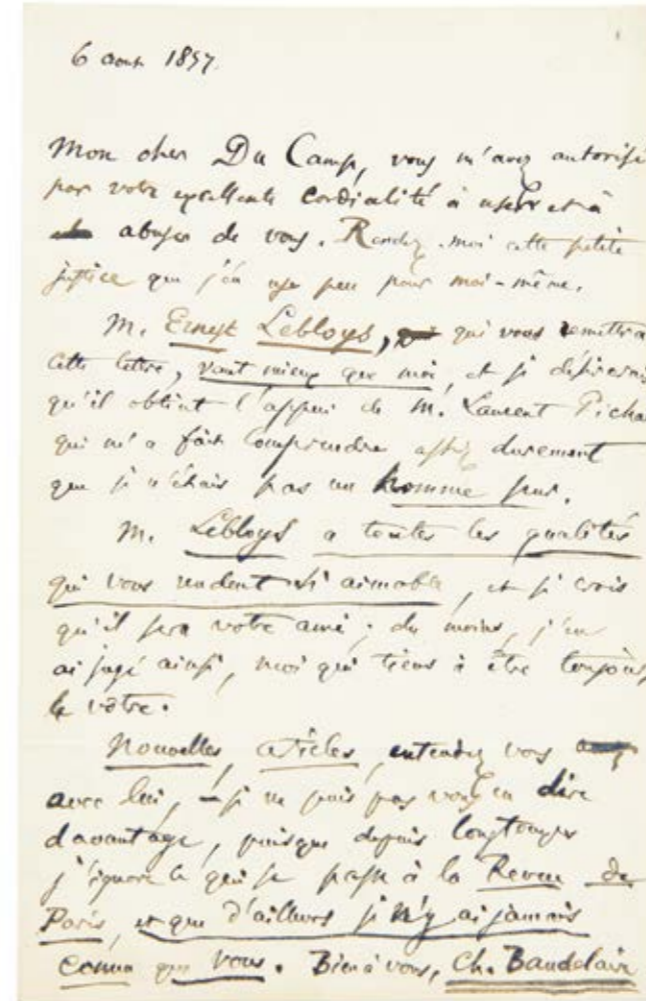 6 aout 1857.
Mon cher Du Camp, vous m'avez autorisé
par votre excellente cordialité à user et à
abuser de vous. Rendez-moi cette petite
justice que j'en use peu pour moi-même.
M. Ernest Lebloys, qui vous remettra
cette lettre, vaut mieux que moi, et je désirerais
qu'il obtînt l'appui de M. Laurent Picha
qui m'a fait comprendre assez durement
que je n'étais pas un homme pur.
M. Lebloys a toutes les qualités
qui vous rendent si aimable, et je crois
qu'il sera votre ami ; du moins, j'en
ai jugé ainsi, moi qui tiens à être toujours
le vôtre.
Nouvelles, articles, entendez vous
avec lui, – je ne puis pas vous en dire
davantage, puisque depuis longtemps
j'ignore ce qui se passe à la Revue de
Paris, et que d'ailleurs je n'y ai jamais
connu que vous. Bien à vous, Ch. Baudelaire